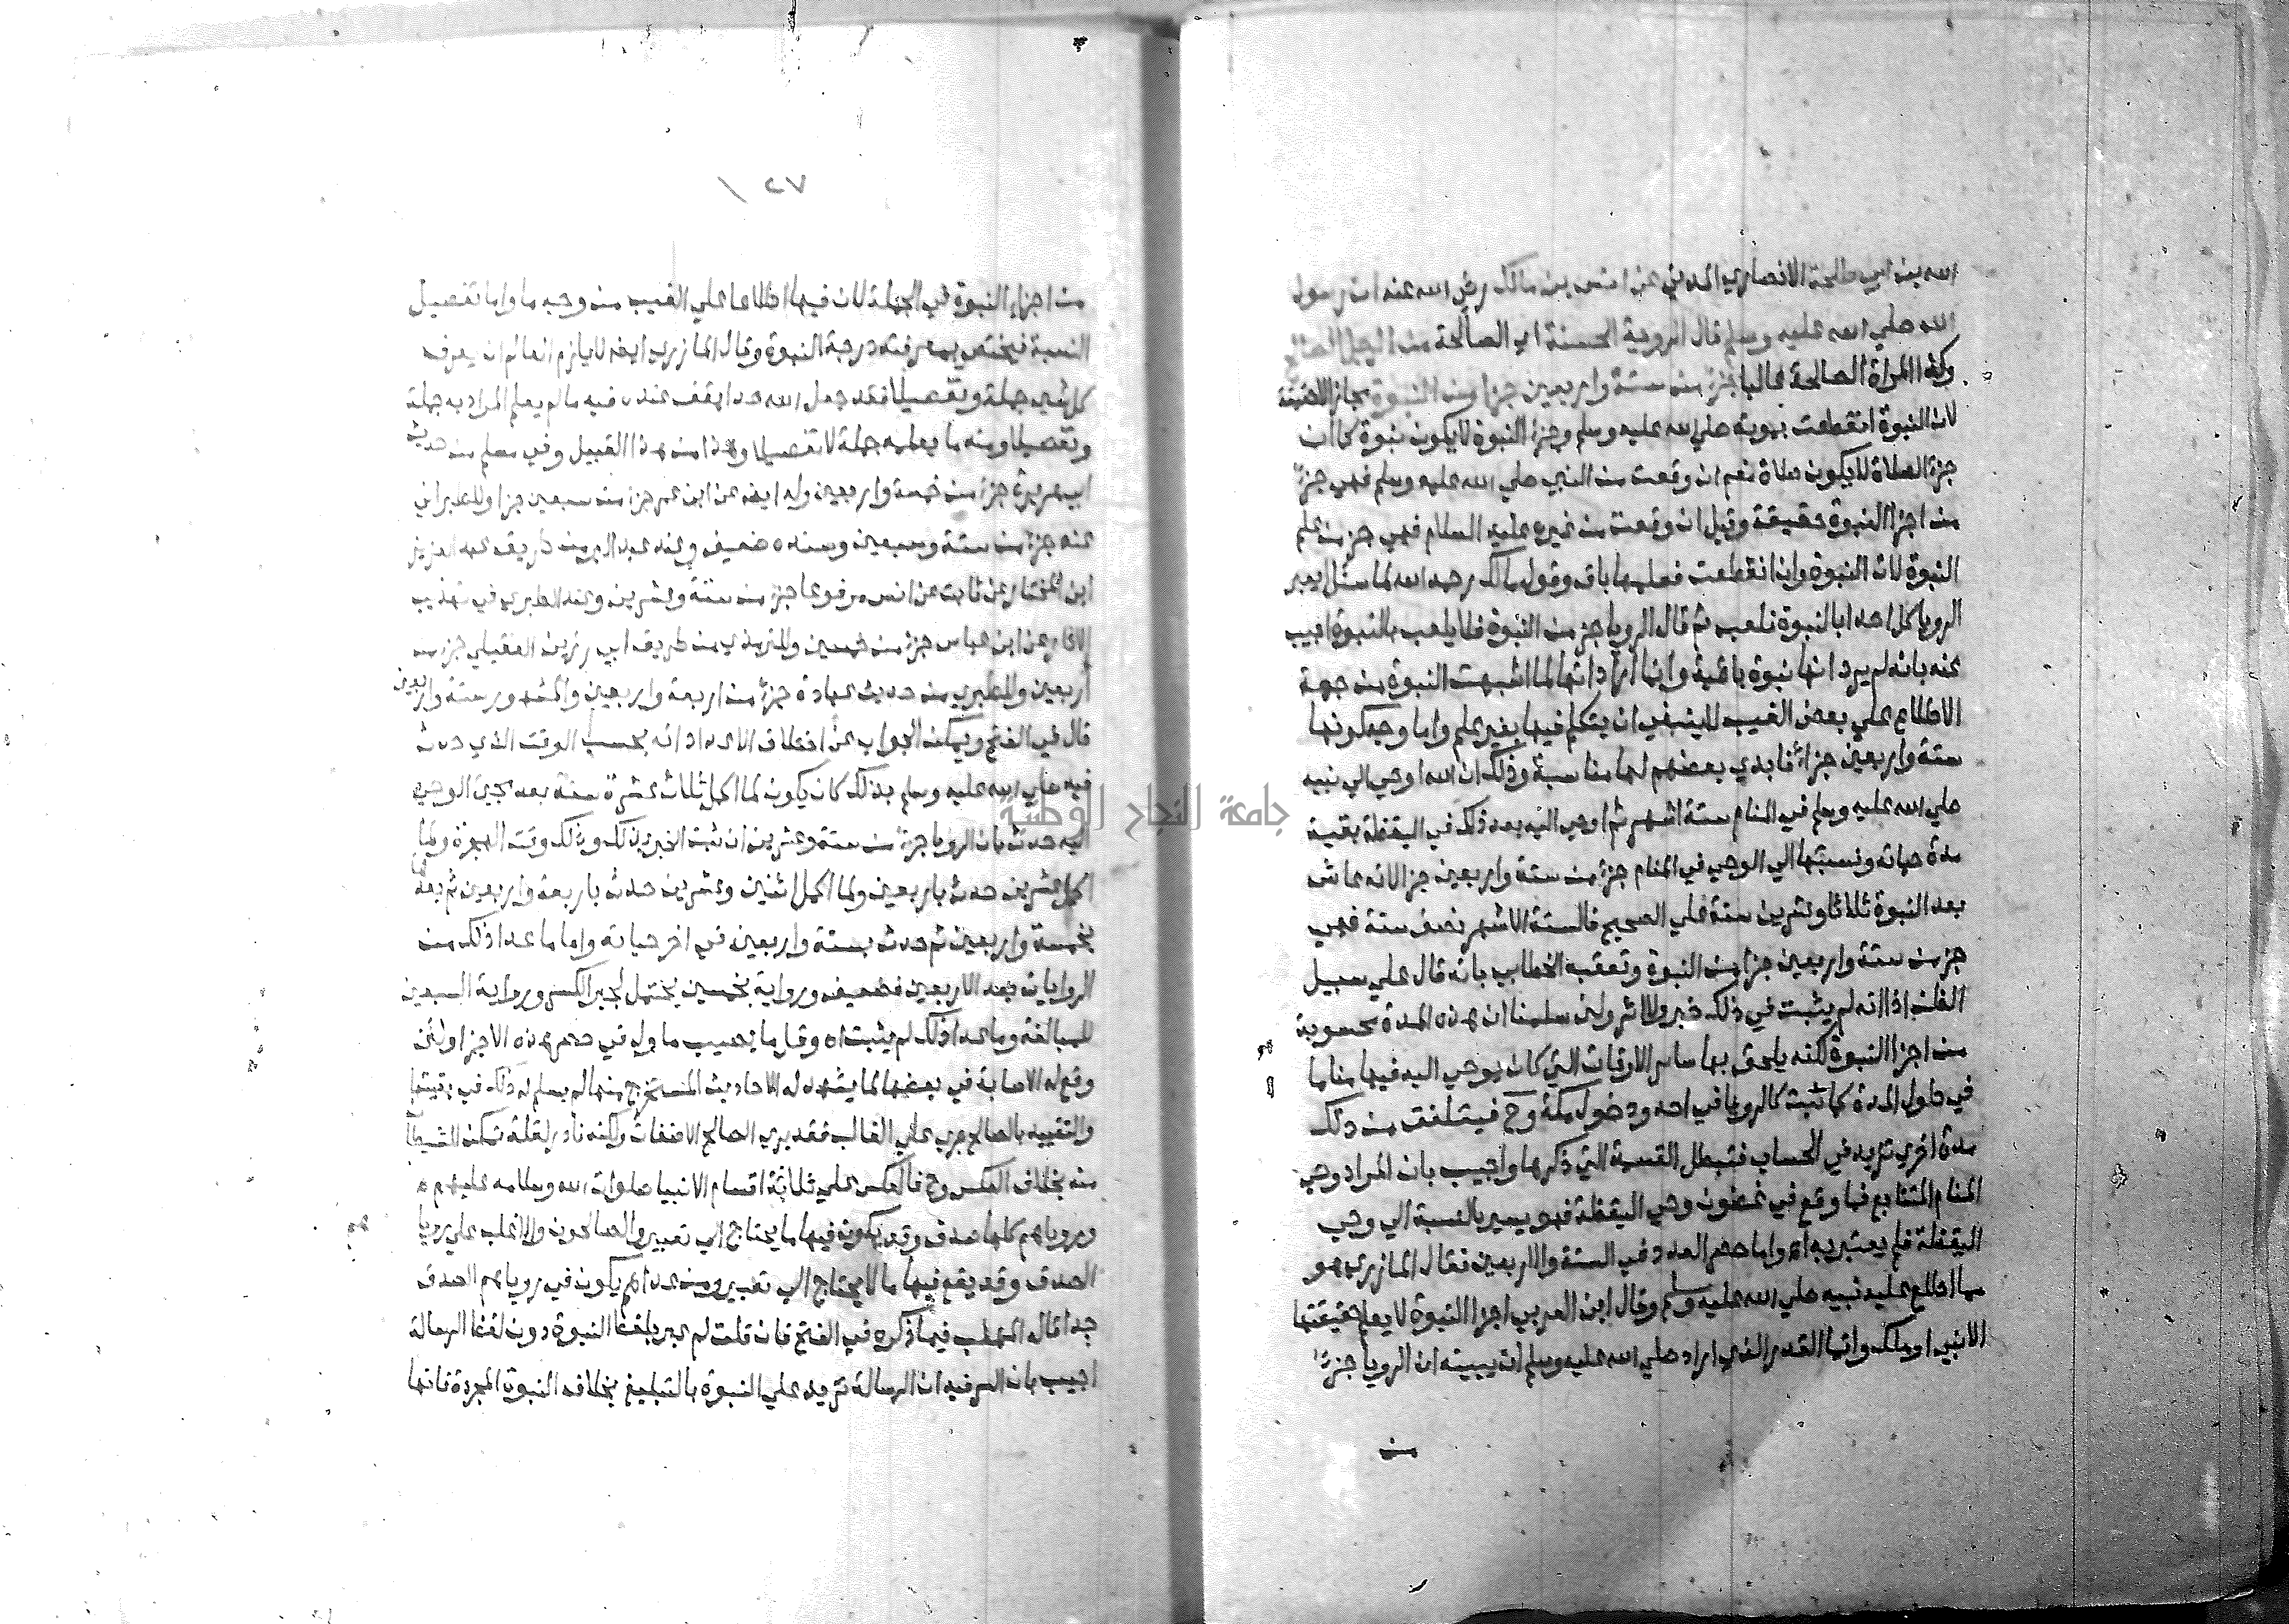 الله بن ابي طلحة الانصاري المدني عن انس بن مالك رضي الله عنه ان رسول
الله صلي الله عليه وسلم قال الروية الحسنة اي الصالحة من الرجل الصالح
وكذا المراة الصالحة غالبا جزء من ستة واربعين جزا من النبوة مجازا لا حقيقة
لان النبوة انقطعت بموته صلي الله عليه وسلم وجزء النبوة لا يكون نبوة كما ان
جزء الصلاة لا يكون صلاة نعم ان وقعت من النبي صلي الله عليه وسلم فهي جزء
من اجزا النبوة حقيقة وقيل ان وقعت من غيره عليه السلام فهي جز من علم
النبوة لان النبوة وان انقطعت فعلمها باق وقول مالك رحمه الله لما سئل ايعبر
الرويا كل احد ابالنبوة تلعب ثم قال الرويا جز من النبوة فلا يلعب بالنبوة اجيب
عنه بانه لم يرد انها نبوة باقية وانما اراد انها لما اشبهت النبوة من جهة
الاطلاع علي بعض الغيب لا ينبغي ان يتكلم فيها بغير علم واما وجه كونها
ستة واربعين جزأ فابدي بعضهم لها مناسبة وذلك ان الله اوحي الي نبيه
صلي الله عليه وسلم في المنام ستة اشهر ثم اوحي اليه بعد ذلك في اليقظة بقية
مدة حياته ونسبتها الي الوحي في المنام جزء من ستة واربعين جزا لانه عاش
بعد النبوة ثلاثا وعشرين سنة علي الصحيح فالستة الاشهر نصف سنة فهي
جز من ستة واربعين جزا من النبوة وتعقبه الخطابي بانه قال علي سبيل
الظن اذ انه لم يثبت في ذلك خبر ولا اثر ولئن سلمنا ان هذه المدة محسوبة
من اجزا النبوة لكنه يلحق بها ساير الاوقات التي كان يوحي اليه فيها مناما
في طول المدة كما ثبت كالرويا في احد ودخول مكة وح فيتلفق من ذلك
مدة اخري تزيد في الحساب فتبطل القسمة التي ذكرها واجيب بان المراد وحي
المنام المتتابع فما وقع في غضون وحي اليقظة فهو يسير بالنسبة الي وحي
اليقظة فلم يعتبر به اه واما حصر العدد في الستة والاربعين فقال المازري هو
مما اطلع عليه نبيه صلي الله عليه وسلم وقال ابن العربي اجزا النبوة لا يعلم حقيقتها
الا نبي او ملك وانما القدر الذي اراد صلي الله عليه وسلم ان يبينه ان الرويا جزءا
من
٢٧
من اجزاء النبوة في الجملة لان فيها اطلاعا علي الغيب من وجه ما واما تفصيل
النسبة فيختص بمعرفته درجة النبوة وقال المازري ايضا لا يلزم العالم ان يعرف
كل شي جملة وتفصيلا فقد جعل الله حدا يقف عنده فمنه ما لم يعلم المراد به جملة
وتفصيلا ومنه ما يعلمه جملة لا تفصيلا وهذا من هذا القبيل وفي مسلم من حديث
ابي هريرة جزء من خمسة واربعين وله ايضا عن ابن عمر جزا من سبعين جزا وللطبراني
عنه جزء من ستة وسبعين وسنده ضعيف وعند عبد البر من طريق عبد العزيز
ابن المختار عن ثابت عن انس مرفوعا جزء من ستة وعشرين وعند الطبري في تهذيب
الاثار عن ابن عباس جزء من خمسين وللترمذي من طريق ابي رزين العقيلي جزء من
أربعين وللطبري من حديث عبادة جزء من اربعة واربعين والمشهور ستة واربعين
قال في الفتح ويمكن الجواب عن اختلاف الاعداد انه بحسب الوقت الذي حدث
فيه صلي الله عليه وسلم بذلك كان يكون لما اكمل ثلاث عشرة سنة بعد مجئ الوحي
اليه حدث بان الرويا جزء من ستة وعشرين ان ثبت الخبر بذلك وذلك وقت الهجرة ولما
اكمل عشرين حدث باربعين ولما اكمل اثنين وعشرين حدث باربعة واربعين ثم بعدها
بخمسة واربعين ثم حدث بستة واربعين في اخر حياته واما ما عدا ذلك من
الروايات بعد الاربعين فضعيف ورواية خمسين يحتمل لجبر الكسر ورواية السبعين
للمبالغة وما عدا ذلك لم يثبت اه وقل ما يصيب ماول في حصر هذه الاجزا ولئن
وقع له الاصابة في بعضها لما يشهد له الاحاديث المستخرج منها لم يسلم له ذلك في بقيتها
والتقييد بالصالح جري علي الغالب فقد يري الصالح الاضغاث ولكنه نادر لقلة تمكن الشيطان
منه بخلاف العكس وح فالعكس علي ثلاثة اقسام الانبيا صلوات الله وسلامه عليهم
وروياهم كلها صدق وقد يكون فيها ما يحتاج الي تعبير والصالحون والاغلب علي رويا
الصدق وقد يقع فيها ما لا يحتاج الي تعبير ومن عداهم يكون في روياهم الصدق
جدا قاله المهلب فيما ذكره في الفتح فان قلت لم عبر بلفظ النبوة دون لفظ الرسالة
اجيب بان السر فيه ان الرسالة تزيد علي النبوة بالتبليغ بخلاف النبوة المجردة فانها
جامعة النجاح الوطنية